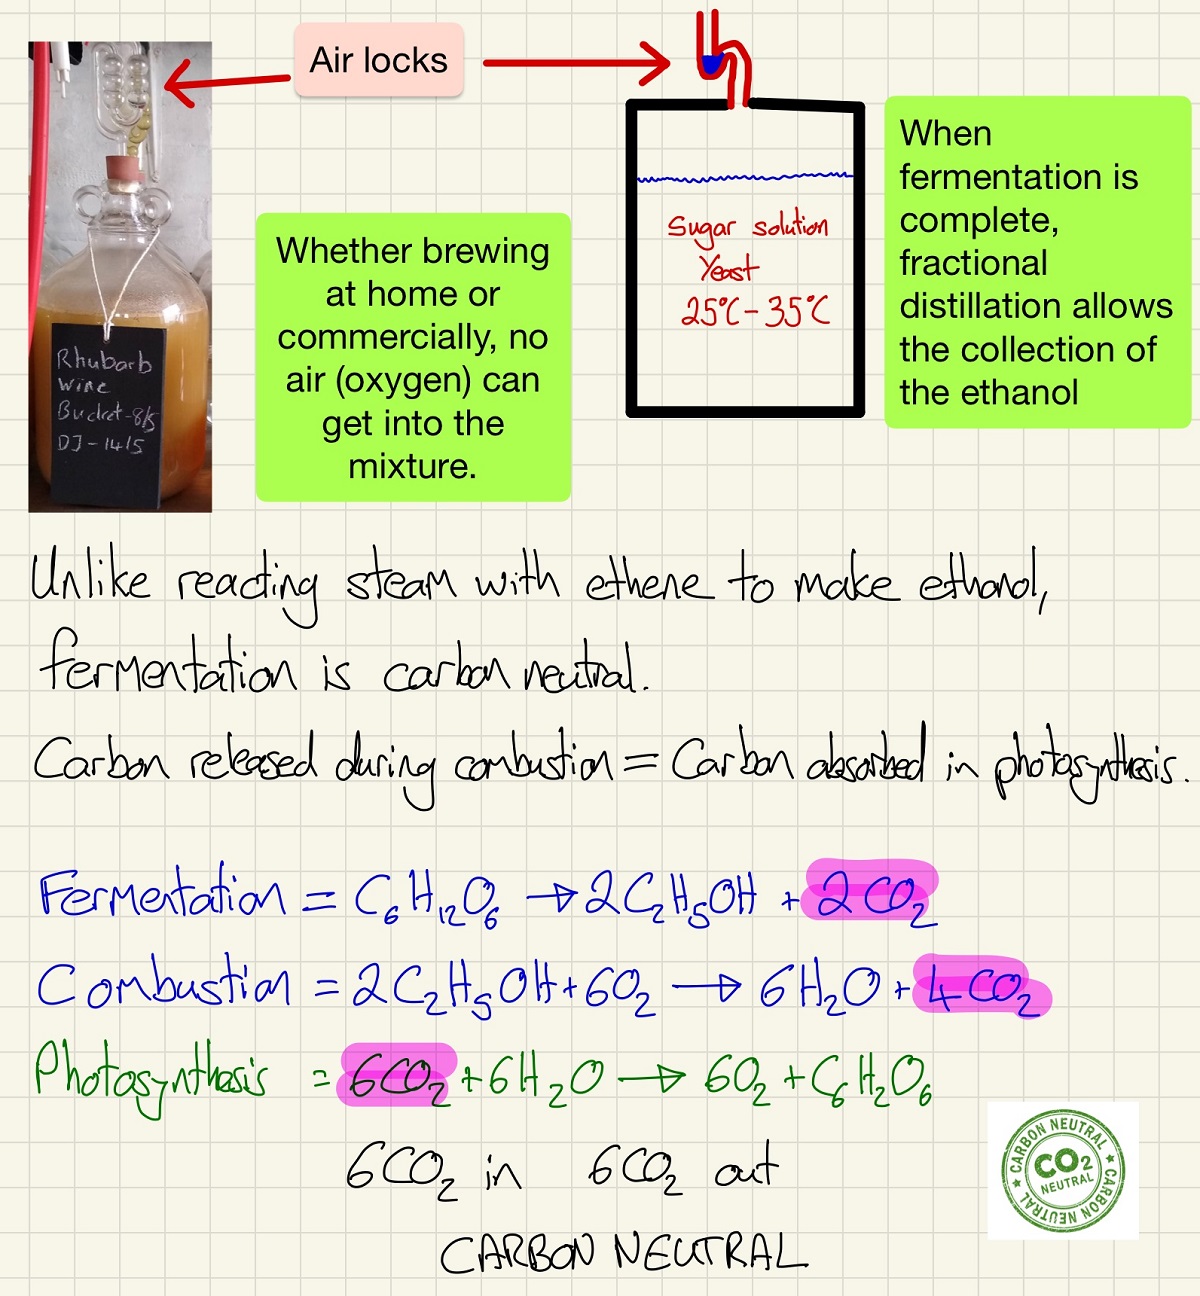 Air locks
Rhubarb
wine
Bucket-8/5
DJ-14/5
Whether brewing
at home or
commercially, no
air (oxygen) can
get into the
mixture.
Sugar solution
Yeast
25°C-35°C
When
fermentation is
complete,
fractional
distillation allows
the collection of
the ethanol
Unlike reacting steam with ethene to make ethanol,
fermentation is carbon neutral.
Carbon released during combustion = Carbon absorbed in photosynthesis.
Fermentation = C₆H₁₂O₆ → 2C₂H₅OH + 2CO₂
Combustion = 2C₂H₅OH + 6O₂ → 6H₂O + 4CO₂
Photosynthesis = 6CO₂ + 6H₂O → 6O₂ + C₆H₂O₆
6CO₂ in 6CO₂ out
CARBON NEUTRAL
CARBON NEUTRAL ★ CARBON NEUTRAL ★ CARBON NEUTRAL ★
CO₂
NEUTRAL